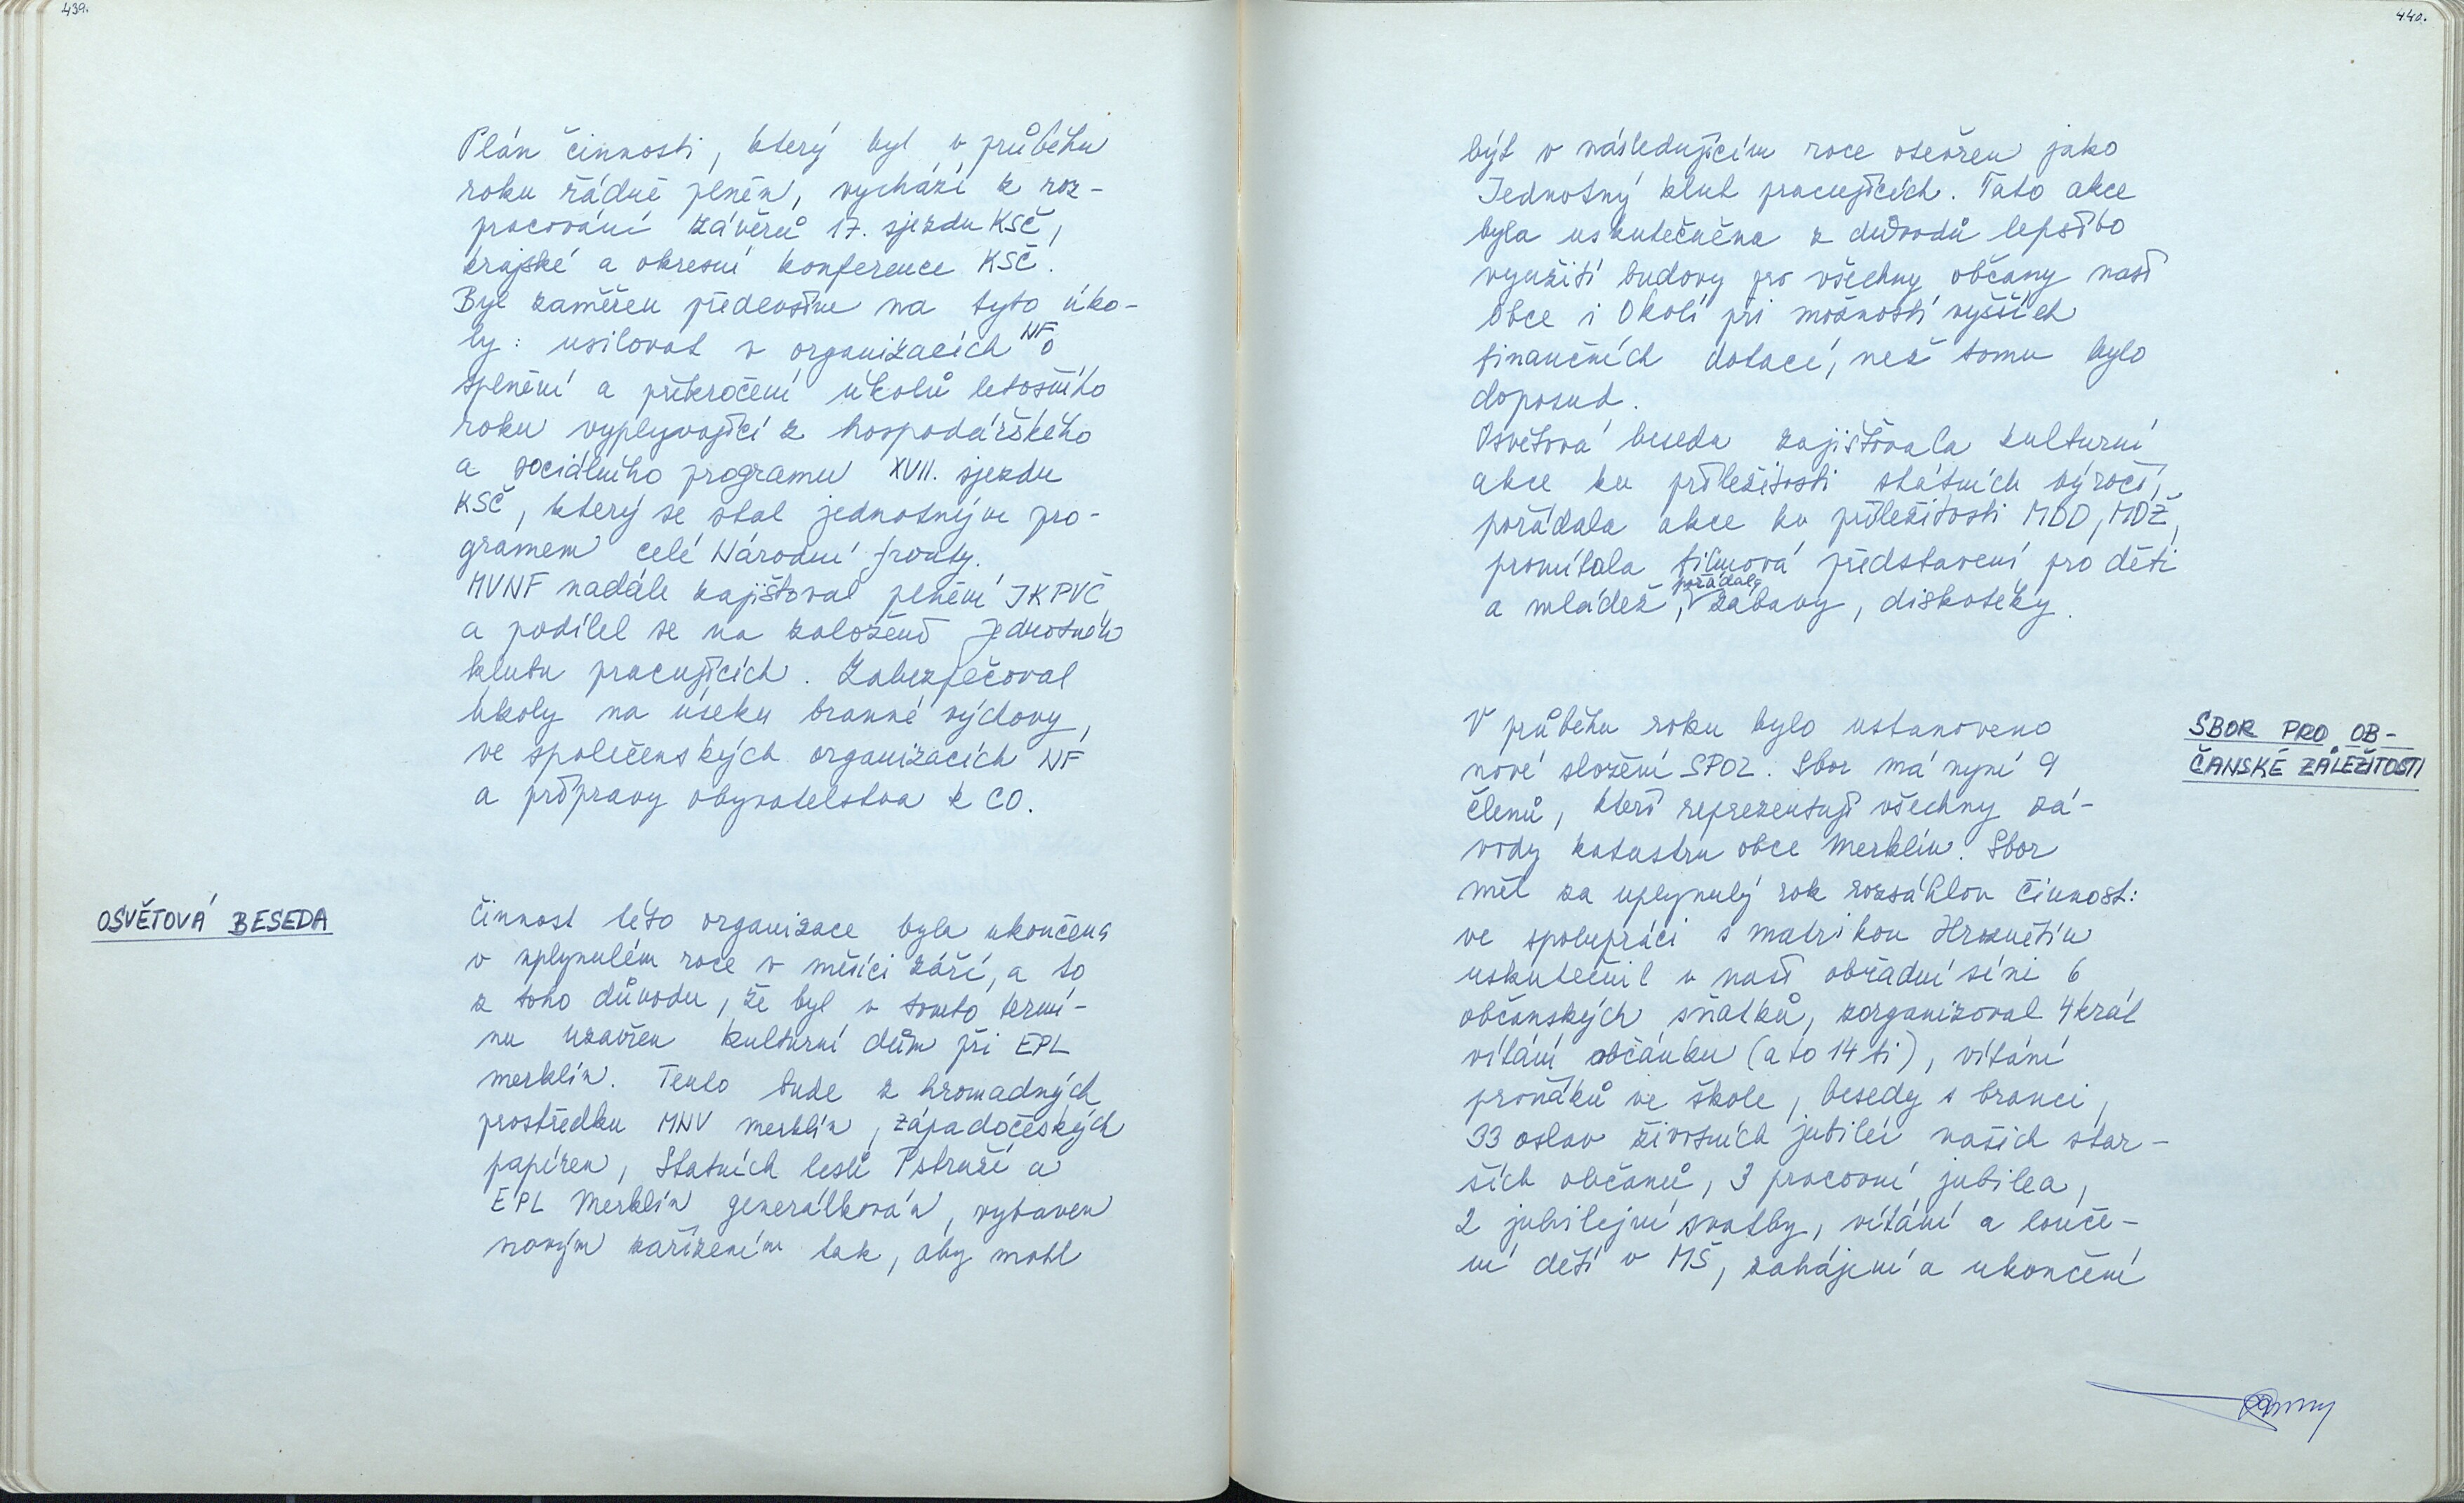 439.
Plán činnosti, který byl v průběhu
roku řádně plněn, vychází z roz-
pracování závěrů 17. sjezdu KSČ,
krajské a okresní konference KSČ.
Byl zaměřen především na tyto úko-
ly: usilovat v organizacích NF o
splnění a překročení úkolů letošního
roku vyplývající z hospodářského
a sociálního programu XVII. sjezdu
KSČ, který se stal jednotným pro-
gramem celé Národní fronty.
MVNF nadále zajišťoval plnění JKPVČ
a podílel se na založení Jednotného
klubu pracujících. Zabezpečoval
úkoly na úseku branné výchovy,
ve společenských organizacích NF
a přípravy obyvatelstva k CO.
OSVĚTOVÁ BESEDA
Činnost této organizace byla ukončena
v uplynulém roce v měsíci září, a to
z toho důvodu, že byl v tomto termí-
nu uzavřen kulturní dům při EPL
Merklín. Tento bude z hromadných
prostředku MNV Merklín, Západočeských
papíren, Statních lesů Pstruží a
EPL Merklín generálkován, vybaven
novým zařízením tak, aby mohl
440.
být v následujícím roce otevřen jako
Jednotný klub pracujících. Tato akce
byla uskutečněna z důvodů lepšího
využití budovy pro všechny občany naší
Obce i Okolí při možnosti vyšších
finančních dotací, než tomu bylo
doposud.
Osvětová beseda zajišťovala kulturní
akce ku příležitosti státních výročí,
pořádala akce ku příležitosti MDD, MDŽ,
promítala filmová představení pro děti
a mládež, pořádala zábavy, diskotéky.
SBOR PRO OB-
ČANSKÉ ZÁLEŽITOSTI
V průběhu roku bylo ustanoveno
nové složení SPOZ. Sbor má nyní 9
členů, kteří reprezentují všechny zá-
vody katastru obce Merklín. Sbor
měl za uplynulý rok rozsáhlou činnost:
ve spolupráci s matrikou Hroznětín
uskutečnil v naší obřadní síni 6
občanských sňatků, zorganizoval 4krát
vítání občánku (a to 14 ti), vítání
prvňáků ve škole, besedy s branci,
33 oslav životních jubileí našich star-
ších občanů, 3 pracovní jubilea,
2 jubilejní svatby, vítání a louče-
ní dětí v MŠ, zahájení a ukončení